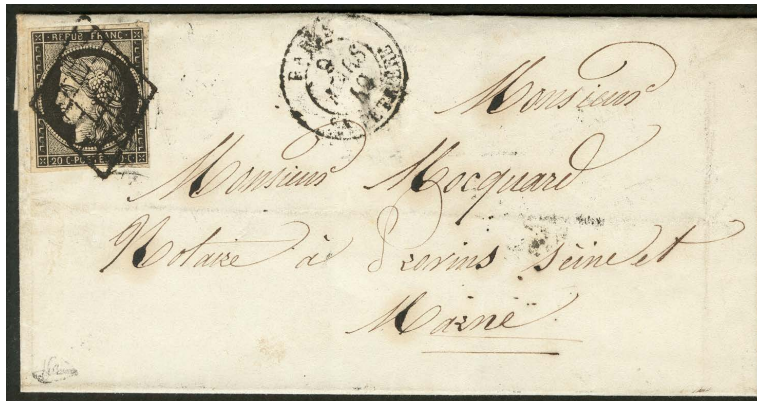 REPUB. FRANC.
20 C. POSTES 20 C.
PARIS
Monsieur
Monsieur Mocquard
Notaire à Provins seine et
Marne